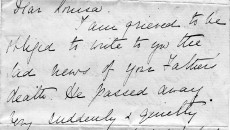 Dear Louisa.
I am grieved to be
obliged to write to you the
sad news of your Father's
death. He passed away.
very suddenly & quietly